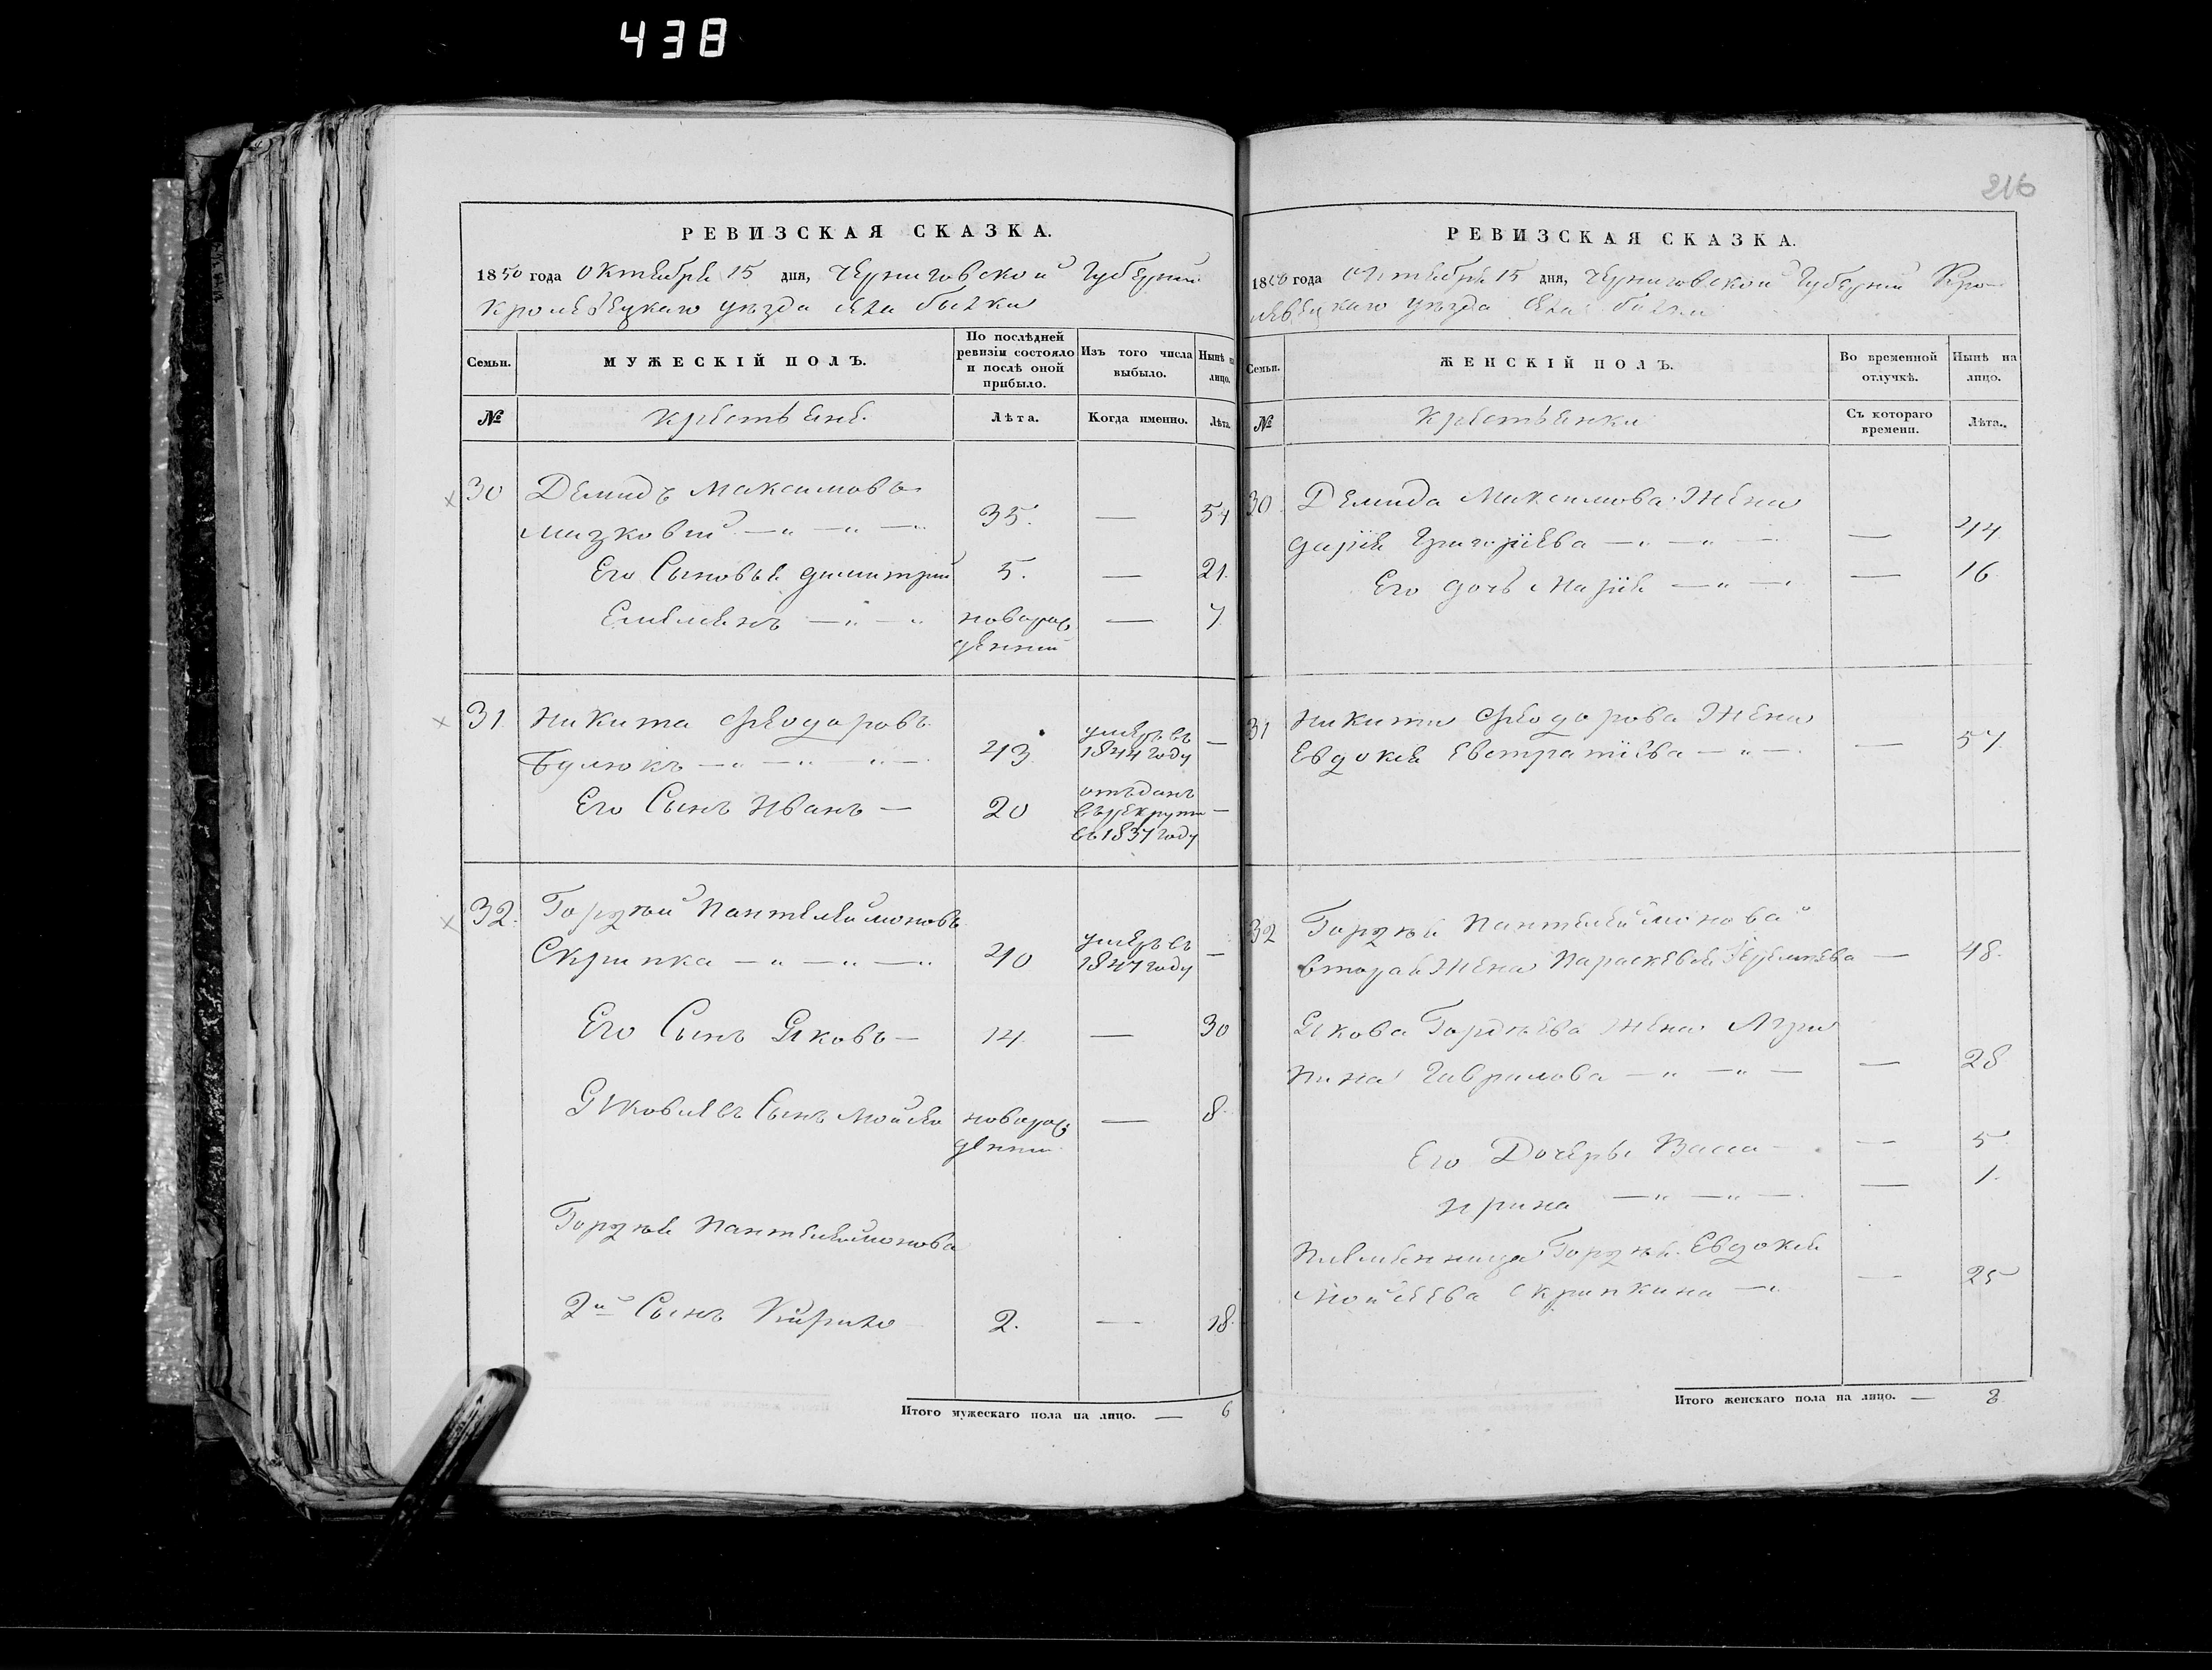 438
216
РЕВИЗСКАЯ СКАЗКА.
1850 года Октября 15 дня, Черниговской Губерніи
Кролевецкаго уѣзда села Бычка
Семьи.
МУЖЕСКІЙ ПОЛЪ.
По послѣдней ревизіи состояло и послѣ оной прибыло.
Изъ того числа выбыло.
Нынѣ на лицо.
№
Крестьяне.
Лѣта.
Когда именно.
Лѣта.
30 Демидъ Максимовъ
35. — 54
Его Сыновья Димитрий 5. — 21.
Емельянъ — „ — „ новорож — 7
денный
31. Никита Феодоровъ
Булюкъ — „ — „ „ — 43 умеръ въ 1844 году —
Его Сынъ Иванъ — 20 отъданъ въ рекруты въ 1837 году —
32. Гордѣй Пантелеймоновъ
Скрипка — „ — „ — „ 40 умеръ въ 1847 году —
Его Сынъ Яковъ — 14 — 30
Яковлевъ Сынъ Мойсей новорож — 8.
денный
Гордѣя Пантелеймонова
2й Сынъ Кирило 2. — 18.
Итого мужескаго пола на лицо. — 6
РЕВИЗСКАЯ СКАЗКА.
1850 года Октября 15 дня, Черниговской Губерніи Кро-
левецкаго уѣзда села Бычка
Семьи.
ЖЕНСКІЙ ПОЛЪ.
Во временной отлучкѣ.
Нынѣ на лицо.
№
Крестьянки
Съ котораго времени.
Лѣта.
30. Демида Максимова Жена
Дарія Григоріева — „ — „ — — 44
Его дочь Марія — „ — — 16
31 Никиты Феодорова Жена
Евдокія Евстратіева — „ — — 57
32 Гордѣя Пантелеймонова
вторая Жена Параскевія — 48.
Якова Гордѣева Жена Агри
пина Гаврилова — „ — „ — — 28
Его Дочеры Васса — — 5
Ирина — „ — „ — — 1.
Племянница Гордѣя Евдокія
Мойсеева Скрипкина — „ — 25
Итого женскаго пола на лицо. — 8